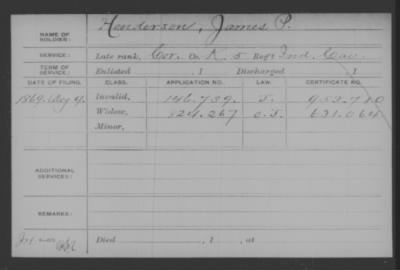 NAME OF SOLDIER: Henderson, James P.
SERVICE: Late rank, Cor. Co. K, 5 Reg't Ind. Cav.
TERM OF SERVICE: Enlisted , 1 Discharged , 1
DATE OF FILING. CLASS. APPLICATION NO. LAW. CERTIFICATE NO.
Invalid, 146.739.
Widow, 824.267 631.064
Minor,
ADDITIONAL SERVICES:
REMARKS:
Died , 1 , at